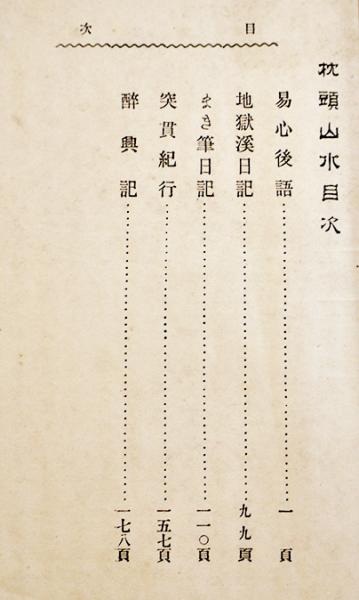 枕頭山水目次
目次
易心後語……一頁
地獄溪日記……九九頁
まき筆日記……一一〇頁
突貫紀行……一五七頁
醉興記……一七八頁